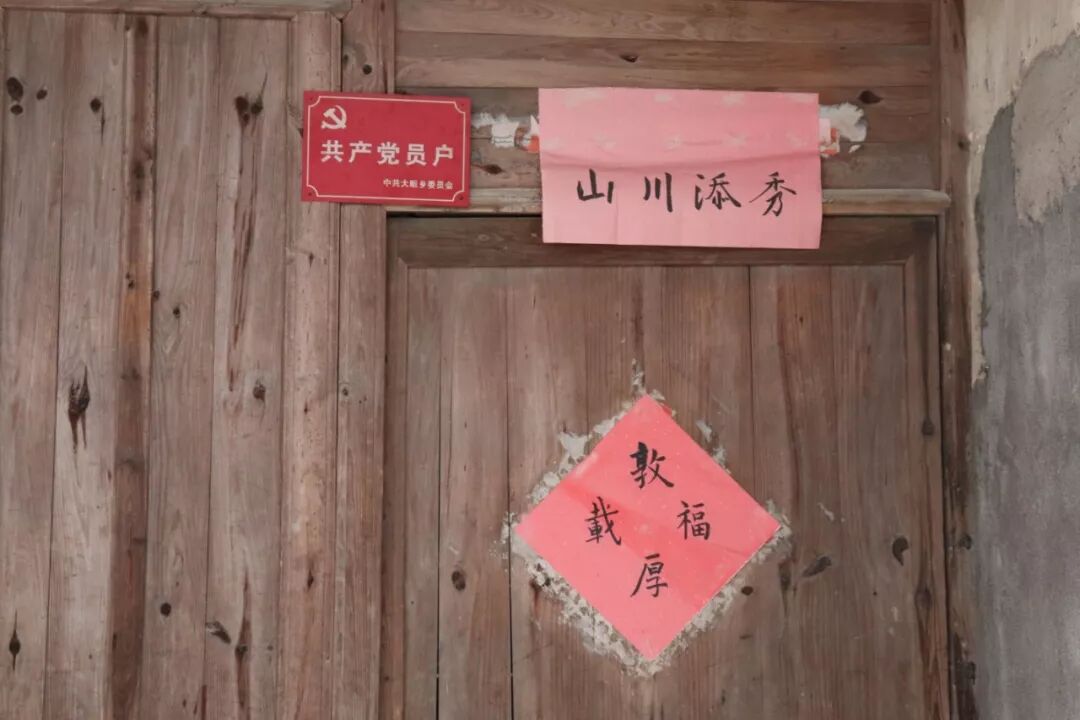 共产党员户
中共大畈乡委员会
山川添秀
敦
載 福
厚